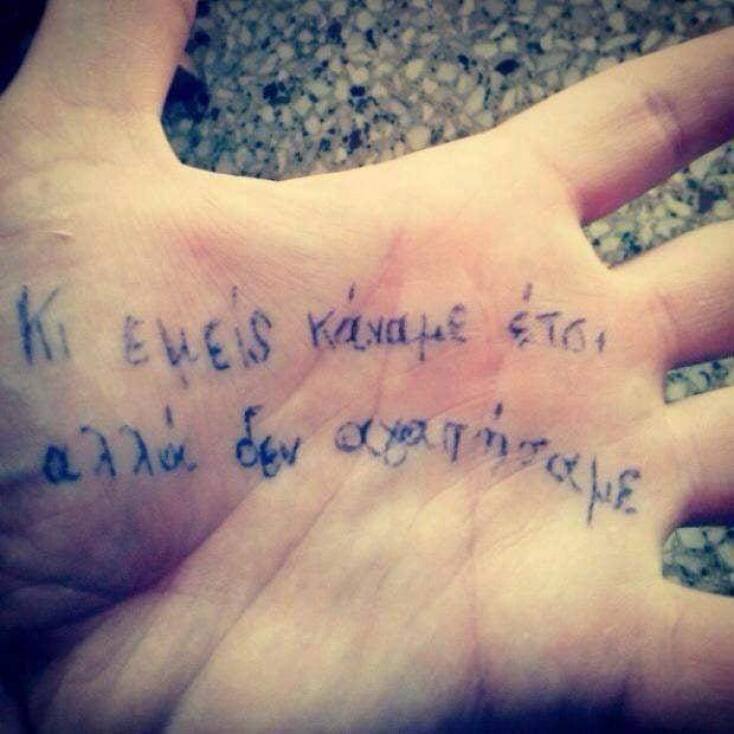 Κι εμείς κάναμε έτσι,
αλλά δεν αγαπήσαμε